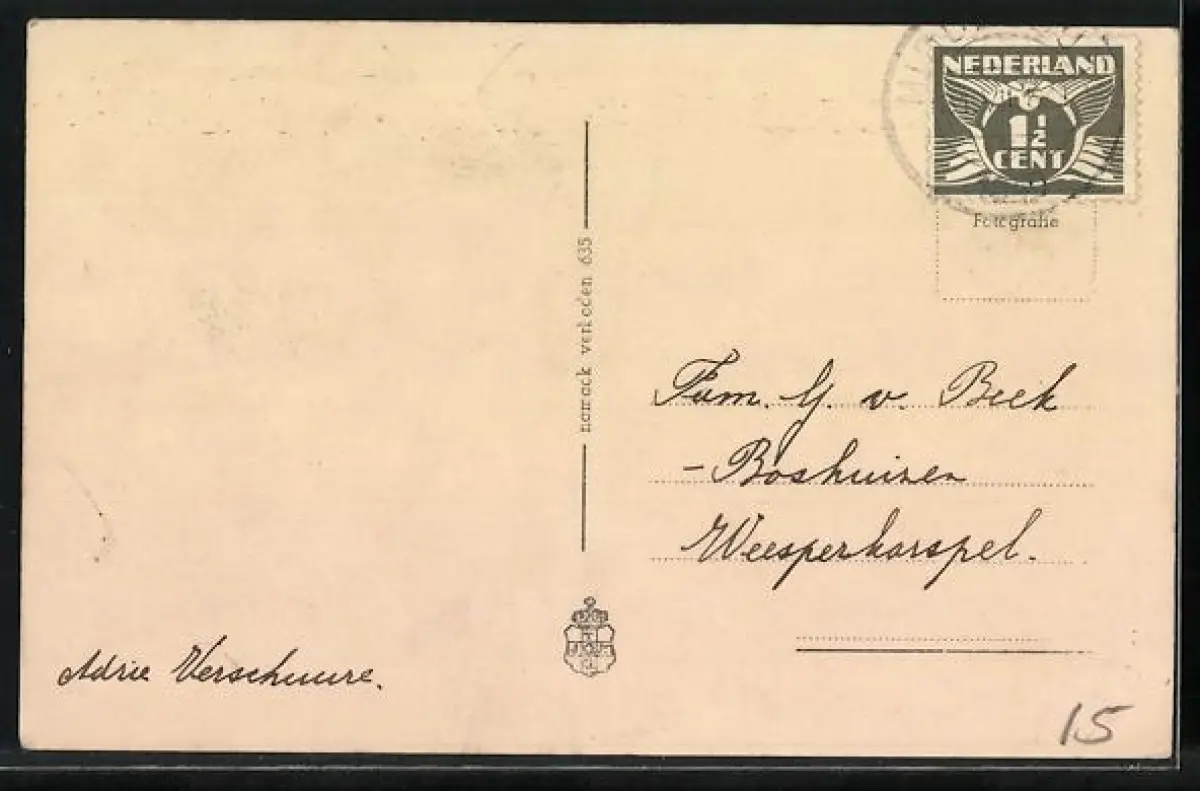 NEDERLAND
1½
CENT
Fotografie
namaak verboden 635
Fam. G. v. Beek
- Boshuizen
Weesperkarspel.
Adrie Verschuure.
15